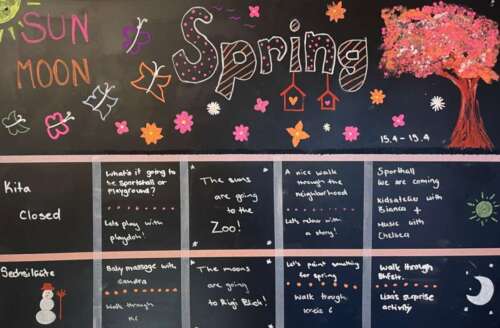 SUN
MOON
Spring
15.4 - 19.4
Kita
Closed
What's it going to
be Sportshall or
Playground?
Lets play with
playdoh!
The suns
are going
to the
Zoo!
A nice walk
through the
neighborhood
Let's relax with
a story!
Sporthall
We are coming
kidsatelier with
Bianca +
Music with
Chelsea
Sechsiläute
Baby massage with
Sandra
Walk through
The moons
are going
to Rigi Blick!
Let's paint something
for spring
Walk through
Kreis 6
Walk through
Bhfstr.
Lisas surprise
activity